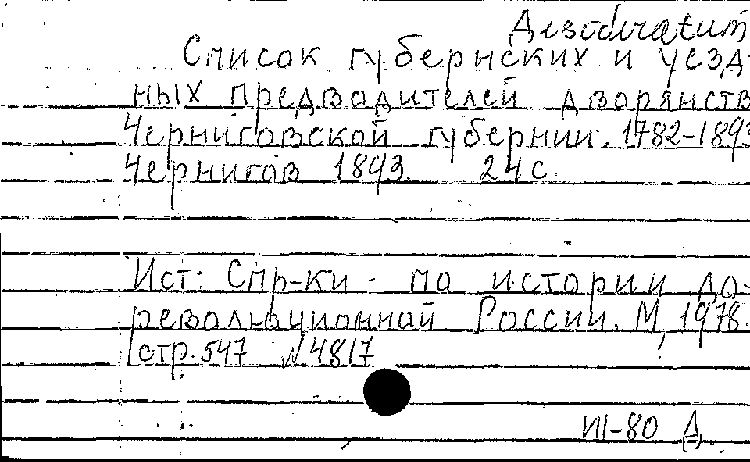 Desideratum
Список губернских и уезд-
ных предводителей дворянств
Черниговской губернии. 1782-1893
Чернигов 1893. 24 с.
Ист: Спр-ки по истории до-
революционной России. М, 1978.
стр. 547 №4817
III-80 Д